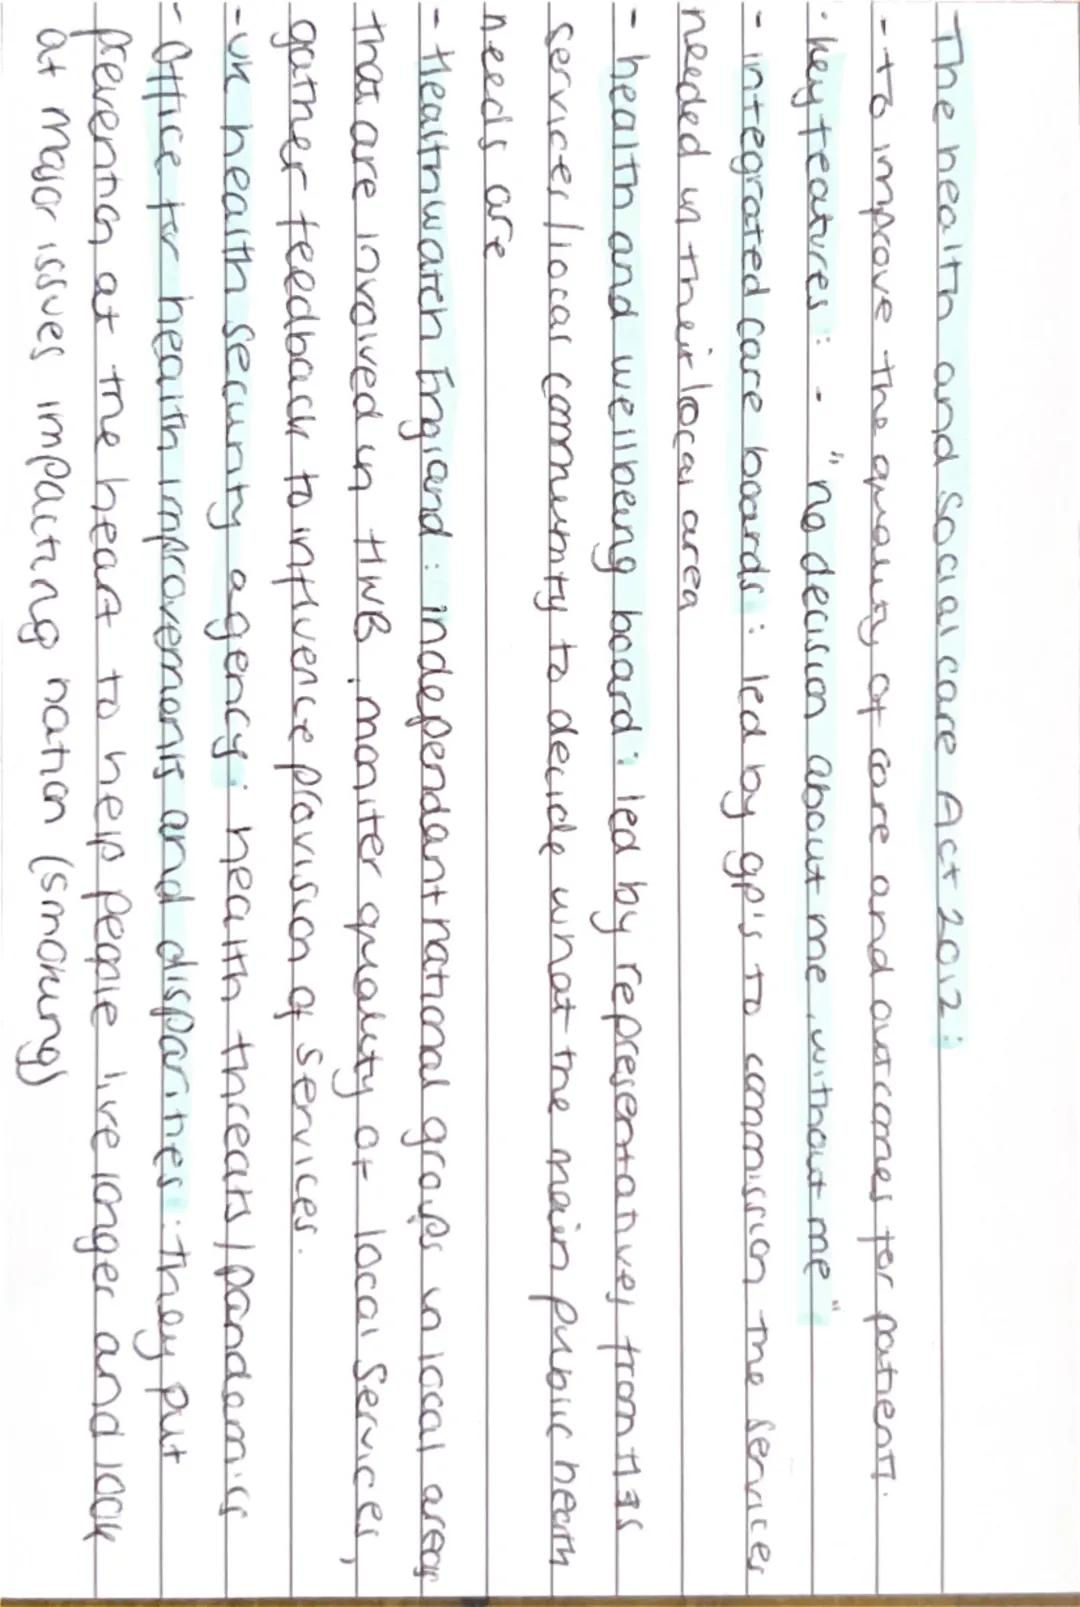 The health and Social care Act 2012:
- to improve the quality of care and outcomes for patients.
· key features: - "no decision about me, without me"
- integrated care boards: led by gp's to commission the services
needed in their local area
- health and wellbeing board: led by representatives from H&S
services/local community to decide what the main public health
needs are
- Healthwatch England: independant national groups in local areas
that are involved in HWB, moniter quality of local services,
gather feedback to influence provision of services.
- UK health security agency: health threats/pandemics
- Office for health improvements and disparities: they put
prevention at the heart to help people live longer and look
at major issues impacting nation (smoking)